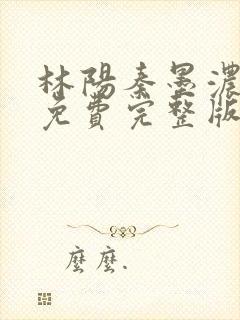 林陽秦墨濃
免費完整版
麼麼.